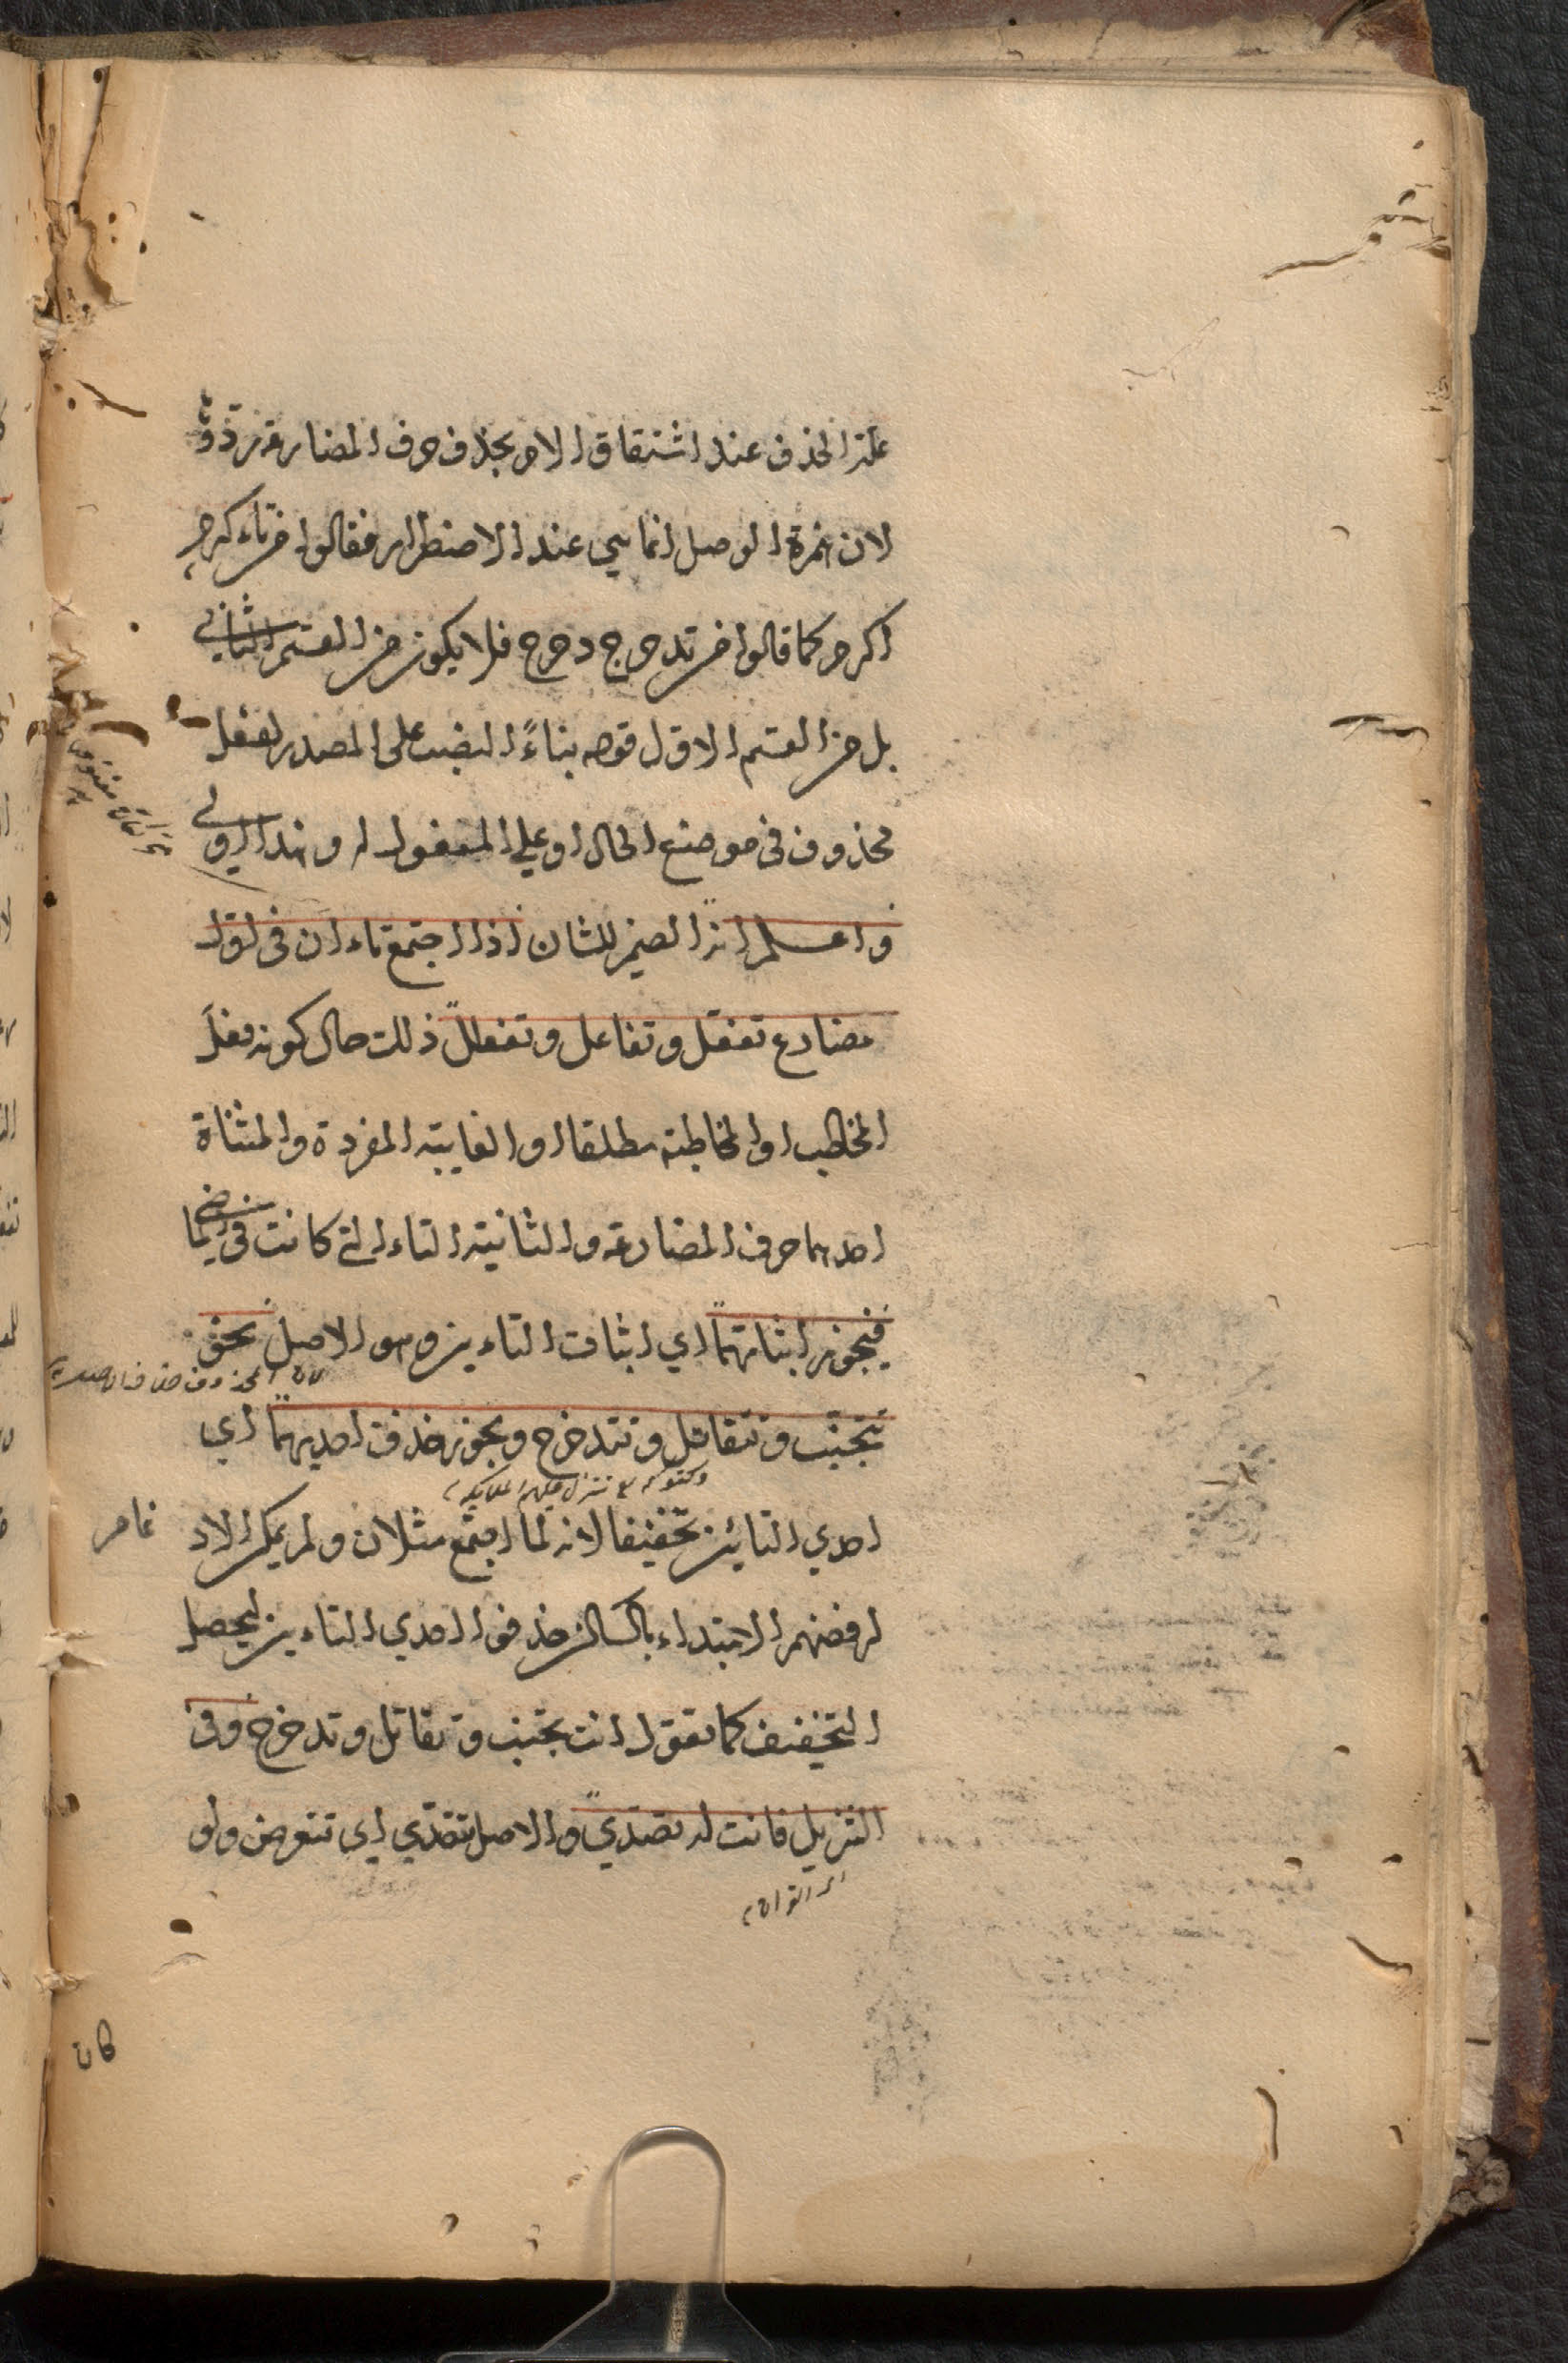 علة الحذف عند اشتقاق الامر بحذف حرف المضارعة تردّوٗ
لان همزة الوصل انما هي عند الاضطرار فقالوا من تاء كرم
اكرم كما قالوا من تدحرج دحرج فلا يكون من القسم الثاني
بل من القسم الاول قوله بناءً النصب على المصدر لفعل
محذوف في موضع الحال او علي المفعول له وهذا اولي
واعلم انه الضمير للشان اذا اجتمع تاءان في اول
مضارع تفعّل وتفاعل وتفعلل ذلك حال كونه فعل
المخاطب او المخاطبة مطلقا او الغايبة المفردة والمثناة
احدهما حرف المضارعة والثانية التاء التي كانت في ماضيها
فيجوز اثباتهما اي اثبات التاءين وهو الاصل نحو
تتجنّب وتتقاتل وتتدحرج ويجوز حذف احديهما اي
وكقوله تتنزل عليهم الملايكة
احدي التائين تخفيفا لانه لما اجتمع مثلان ولم يمكن الاد
غام
لرفضهم الابتداء بالساكن حذفوا احدي التاءين ليحصل
التخفيف كما تقول انت تجنب وتقاتل وتدحرج وفي
التنزيل فانت له تصدّي والاصل تتصدّي اي تتعرض ولو
اي القران
كان